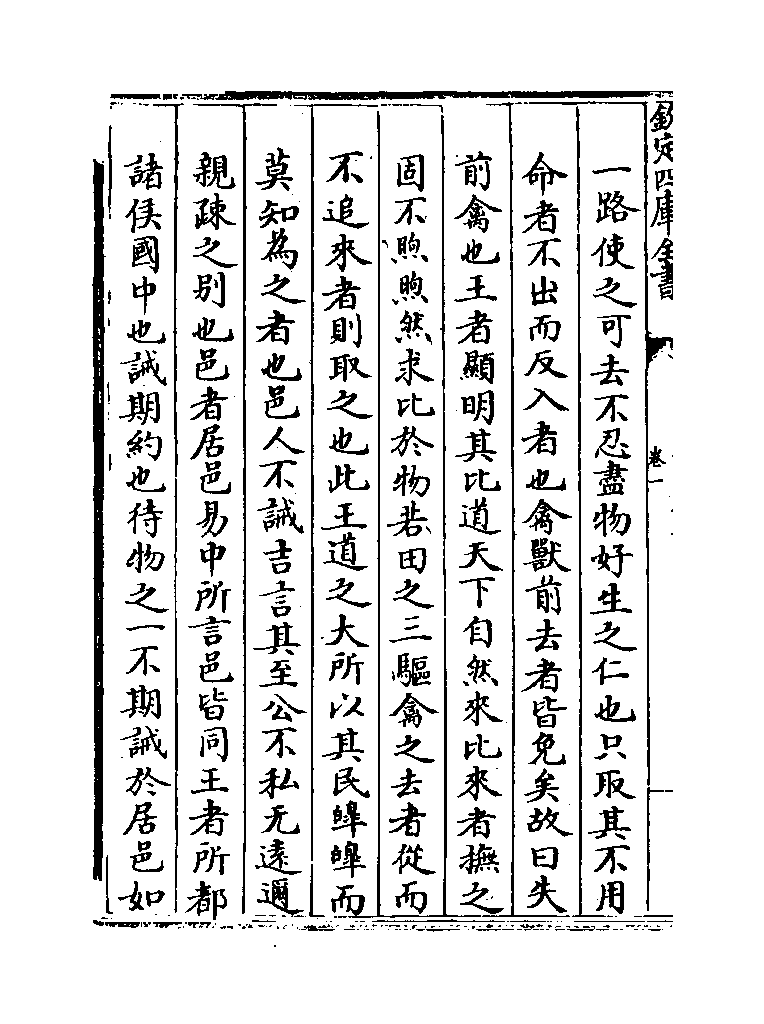 欽定四庫全書
卷一
一路使之可去不忍盡物好生之仁也只取其不用
命者不出而反入者也禽獸前去者皆免矣故曰失
前禽也王者顯明其比道天下自然來比來者撫之
固不煦煦然求比於物若田之三驅禽之去者從而
不追來者則取之也此王道之大所以其民皥皥而
莫知為之者也邑人不誡吉言其至公不私无遠邇
親疎之别也邑者居邑易中所言邑皆同王者所都
諸侯國中也誡期約也待物之一不期誡於居邑如